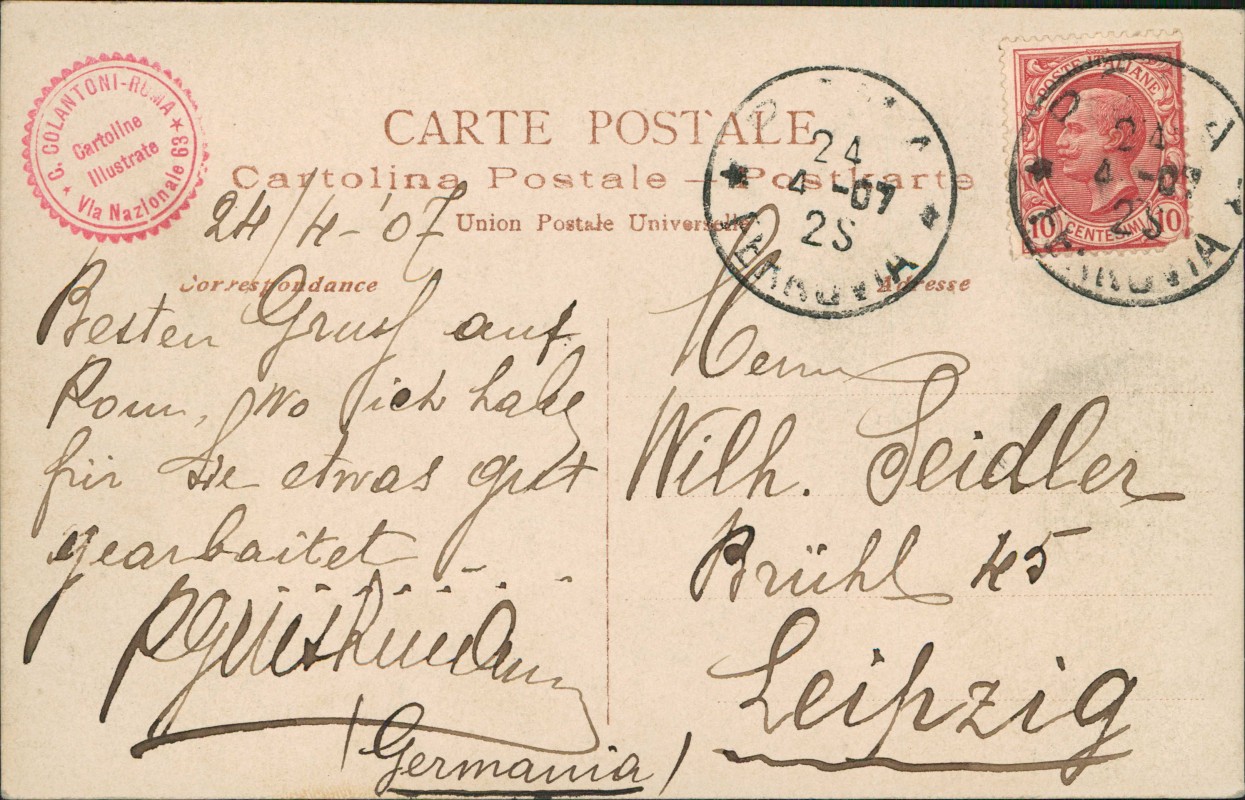 G. COLANTONI-ROMA
Cartoline
Illustrate
Via Nazionale 63
CARTE POSTALE
Cartolina Postale – Postkarte
Union Postale Universelle
24/4-'07
Correspondance
Adresse
POSTE ITALIANE
10 CENTESIMI 10
24
4 -07
2S
FERROVIA
24
4 -07
2S
FERROVIA
Besten Gruss auf
Rom, wo ich habe
für Sie etwas gut
gearbaitet
Herrn
Wilh. Seidler
Brühl 45
Leipzig
(Germania)